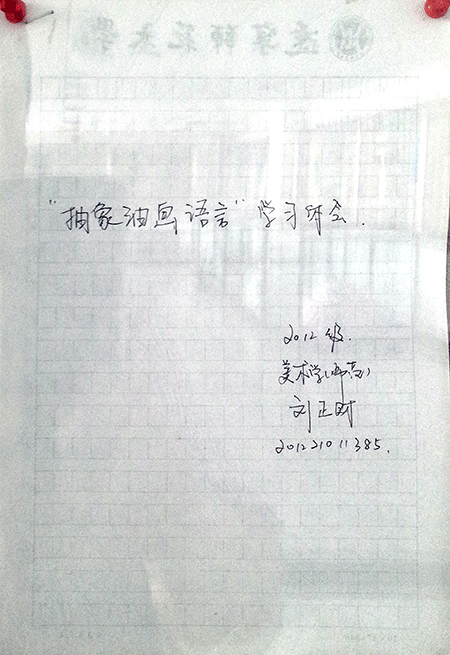 辽宁师范大学
"抽象油画语言"学习体会.
2012级.
美术学(师范)
刘正时
201221011385.